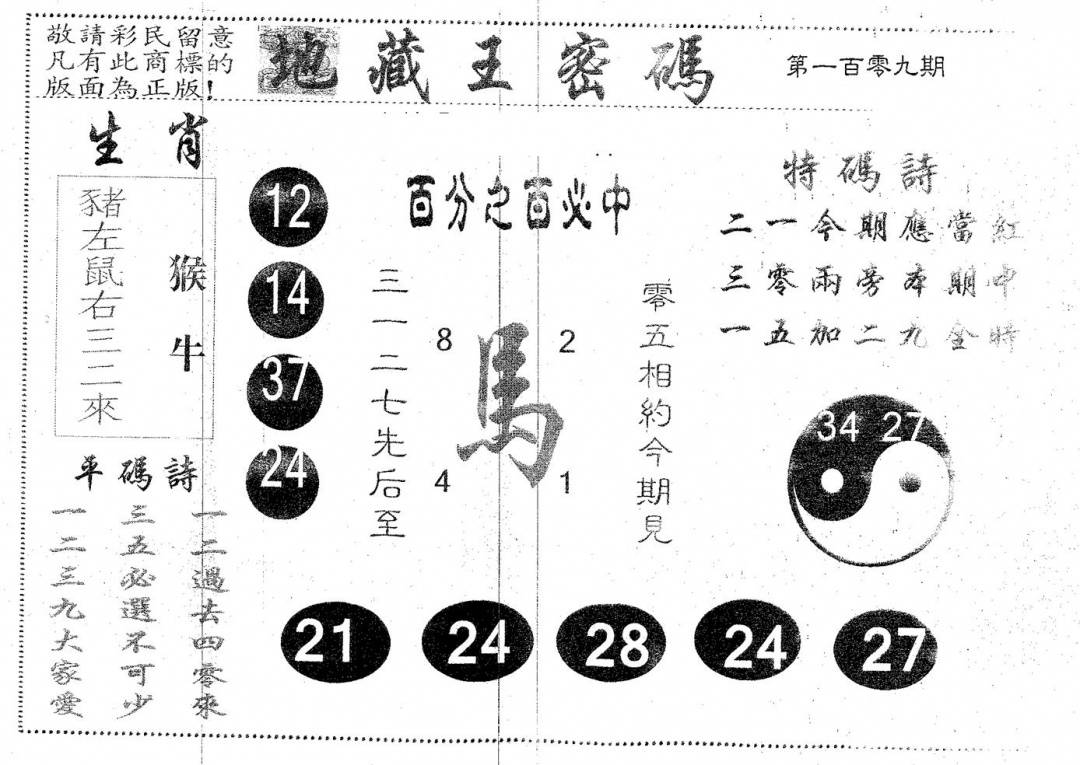 敬請彩民留意
凡有此商標的
版面為正版!
地藏王密碼
第一百零九期
生肖
豬左鼠右三二來
猴牛
12
14
37
24
百分之百必中
三一二七先后至
8
2
馬
4
1
零五相約今期見
特碼詩
二一今期應當紅
三零兩旁本期中
一五加二九金時
34 27
平碼詩
一二三九大家愛
三五必選不可少
一二過去四零來
21
24
28
24
27